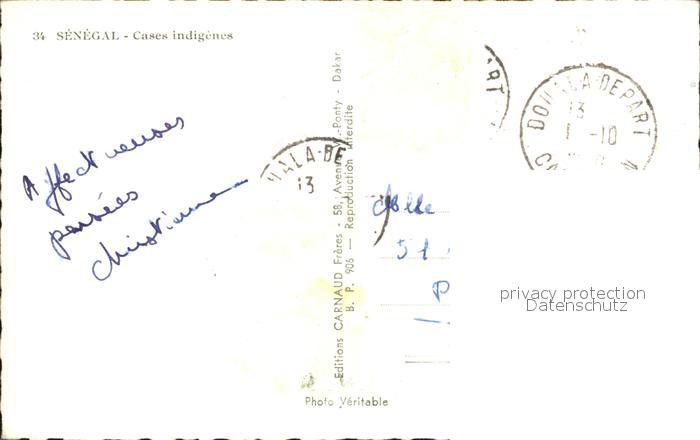 34 SÉNÉGAL - Cases indigènes
Affectueuses
pensées
Christiane
Editions CARNAUD Frères - 58, Avenue W.-Ponty - Dakar
B. P. 906 — Reproduction Interdite
MALA-DE
13
ART
DOUALA-DEPART
13
1 -10
CA
Mlle
51
P
privacy protection
Datenschutz
Photo Véritable